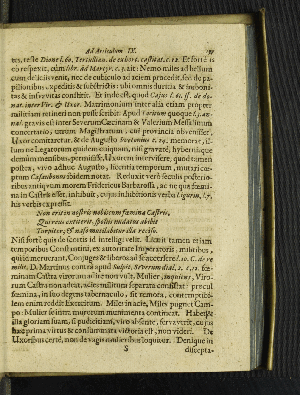 Ad Articulum IX.
tes, teste Dione l. 60. Tertullian. de exhort. castitat. c. 12. Et fortè is
eò respexit, cùm libr. ad Martyr. c. 3. ait: Nemo miles ad bellum
cum deliciis venit, nec de cubiculo ad aciem procedit, sed de pa-
pilionibus expeditis & substrictis: ubi omnis duritia & imboni-
tas & insuavitas constitit. Et inde est, quod Cajus l. 61. ff. de do-
nat. inter Vir. & Uxor. Matrimonium inter alia etiam propter
militiam retineri non posse scribit. Apud Tacitum quoque
gravis est inter Severum Cæcinam & Valerium Messalinum
concertatio, utrum Magistratum, cui provincia obvenisset,
Uxor comitaretur, & de Augusto Suetonius c. 24. memorat, il-
lum ne Legatorum quidem cuiquam, nisi gravatè, hybernisque
demùm mensibus, permisisse, Uxorem intervisere, quod tamen
postea, vivo adhuc Augusto, licentia temporum, mutari cœ-
ptum Casaubonus ibidem notat. Reduxit verò seculis posterio-
ribus antiquum morem Fridericus Barbarossa, ac ne qua fœmi-
na in Castris esset, inhibuit, cujus inhibitionis verba Ligurin. l. 7.
his verbis expressit:
Non erit in nostris mobicum fœmina Castris,
Quæreus captiverit. spolus nudatus abibit
Turpiter, & naso mutilabitur illa reciso.
Nisi fortè quis de scortis id intelligi velit. Laxiùs tamen etiam
temporibus Constantini, ex autoritate Imperatoris, milites,
qui id meruerant, Conjuges & liberos ad se accersere l. 10. C. de re
milit. D. Martinus contra apud Sulpic. Severum dial. 2. c. 12. fœ-
minam Castra virorum adire non vult. Mulier, inquiens, Viro-
rum Castra non adeat, acies militum separata consistat: procul
fœmina, in suo degens tabernaculo, sit remota, contemptibi-
lem enim reddit Exercitum. Miles in acie, Miles pugnet Cam-
po: Mulier se intra murorum munimenta contineat. Habet &
illa gloriam suam, si pudicitiam, viro absente, servaverit, cujus
hæc prima virtus & consummata victoria est, non videri. De
Uxoribus certè, non de vagis mulieribus loquitur. Denique in
S
discepta-